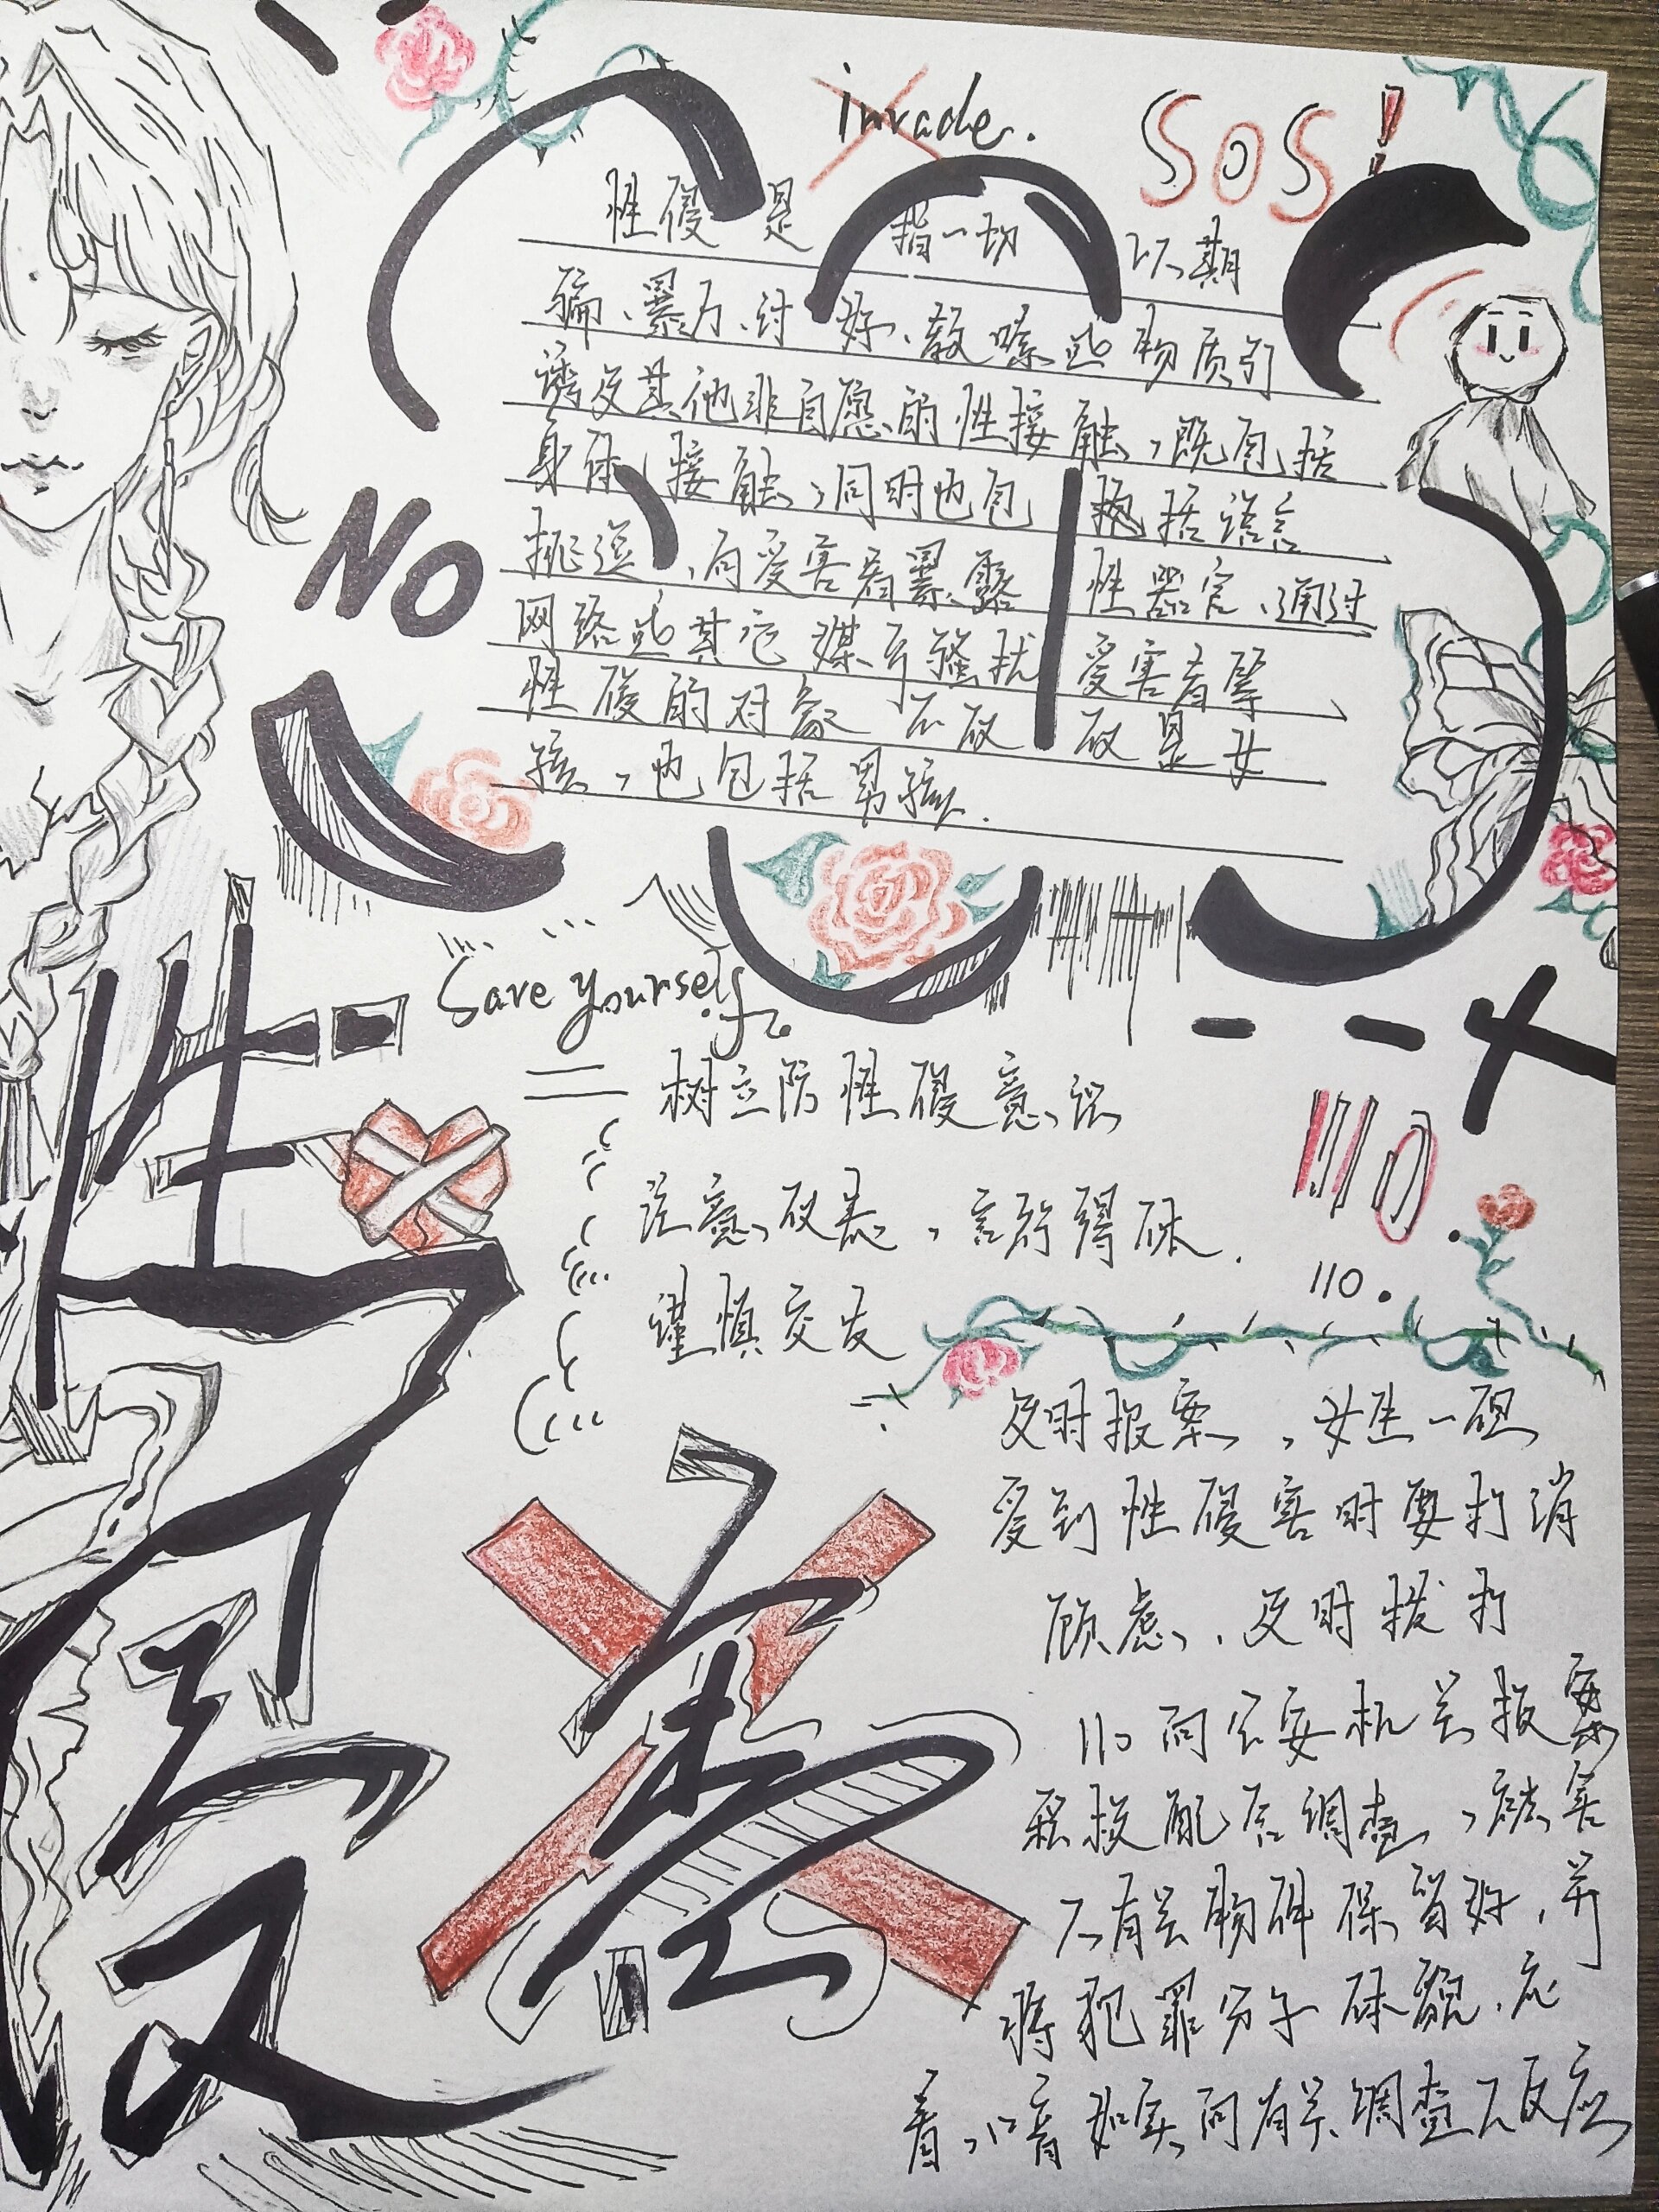 invade.
SOS!
性侵是指一切以期
骗、暴力、讨好、教唆或物质引
诱及其他非自愿的性接触，既包括
身体接触，同时也包抱括语言
挑逗，向受害者暴露性器官、通过
网络或其它媒介骚扰受害者等、
性侵的对象不仅仅是女
孩，也包括男孩.
NO
Save yourself
树立防性侵意识
注意仪表，言行得体.
谨慎交友
110.
110.
性侵害
及时报案，女生一旦
受到性侵害时要打消
顾虑，及时拨打
110向公安机关报案
积极配合调查，
人有关物证保留好，并
将犯罪分子体貌、衣
着、口音如实向有关调查人反应